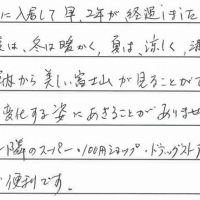 に入居して早、2年が経過しました
は、冬は暖かく、夏は、涼しく、
から美しい富士山が見ることがで
変化する姿にあきることがありませ
隣のスーパー・100円ショップ・ドラッグスト
便利です。